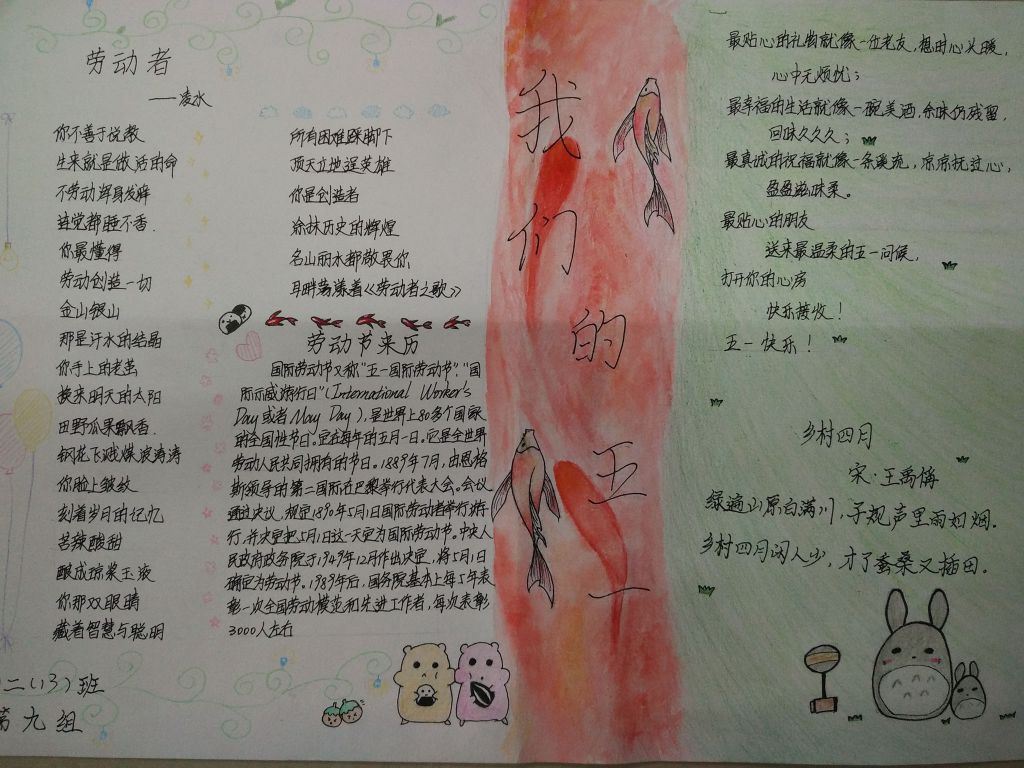 劳动者
——凌水
你不善于说教
生来就是做活的命
不劳动浑身发酸
连觉都睡不香.
你最懂得
劳动创造一切
金山银山
那是汗水的结晶
你手上的老茧
换来明天的太阳
田野瓜果飘香.
钢花飞溅爆浪涛涛
你脸上皱纹
刻着岁月的记忆
苦辣酸甜
酿成琼浆玉液
你那双眼睛
藏着智慧与聪明
所有困难踩脚下
顶天立地逞英雄
你是创造者
涂抹历史的辉煌
名山丽水都敬畏你
耳畔荡漾着《劳动者之歌》
劳动节来历
国际劳动节又称"五一国际劳动节","国
际示威游行日"(International Worker's
Day或者May Day),是世界上80多个国家
的全国性节日。定在每年的五月一日。它是全世界
劳动人民共同拥有的节日。1889年7月,由恩格
斯领导的第二国际在巴黎举行代表大会。会议
通过决议,规定1890年5月1日国际劳动者举行游行
行,并决定把5月1日这一天定为国际劳动节。中央人
民政府政务院于1949年12月作出决定,将5月1日
确定为劳动节。1989年后,国务院基本上每5年表
彰一次全国劳动模范和先进工作者,每次表彰
3000人左右
二(13)班
第九组
我们的五一
最贴心的礼物就像一位老友,想时心头暖,
心中无烦忧;
最幸福的生活就像一碗美酒,余味仍残留,
回味久久久;
最真诚的祝福就像一条溪流,凉凉抚过心,
盈盈滋味柔。
最贴心的朋友
送来最温柔的五一问候,
打开你的心房
快乐接收!
五一快乐!
乡村四月
宋·王禹偁
绿遍山原白满川,子规声里雨如烟.
乡村四月闲人少,才了蚕桑又插田.